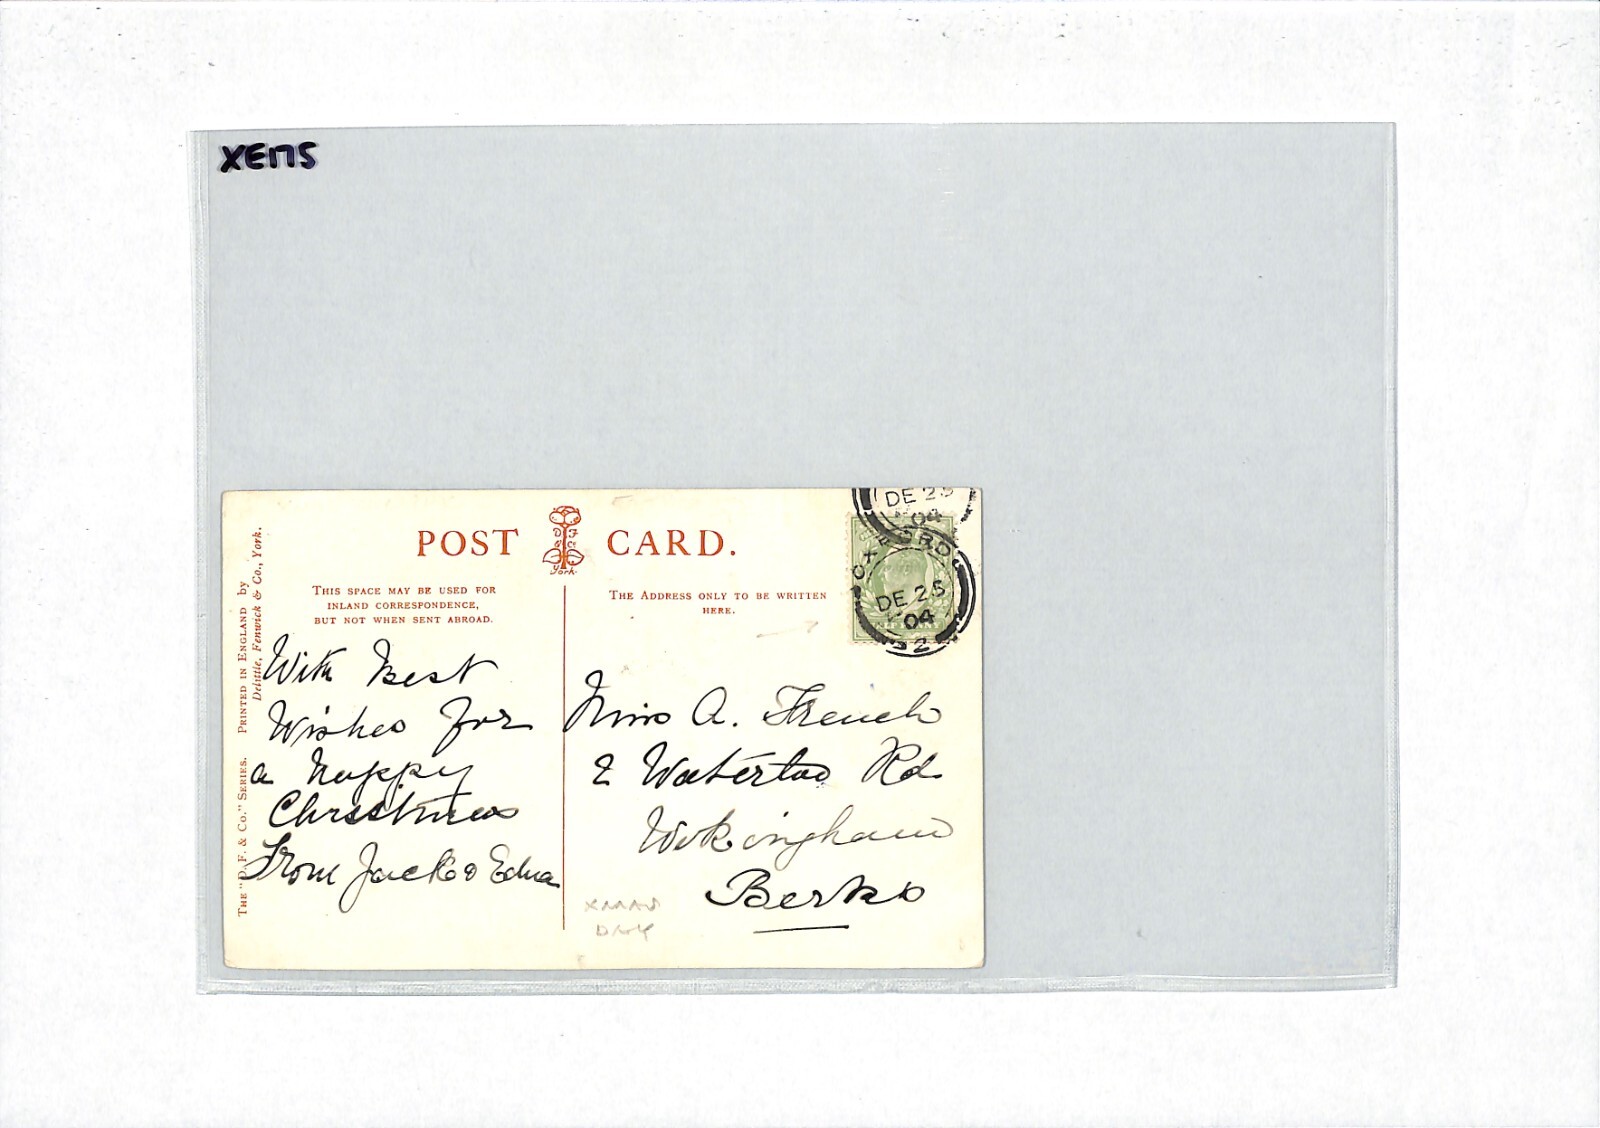 XEMS
POST CARD.
THIS SPACE MAY BE USED FOR
INLAND CORRESPONDENCE,
BUT NOT WHEN SENT ABROAD.
THE ADDRESS ONLY TO BE WRITTEN
HERE.
With Best
Wishes for
a happy
Christmas
From Jack & Edna
Miss A. French
2 Waterloo Rd
Wokingham
Berks
XMAS
DAY
DE 25
04
OXFORD
DE 25
04
2
HALFPENNY
York.
PRINTED IN ENGLAND by
Delittle, Fenwick & Co., York.
THE "D. F. & Co." SERIES.